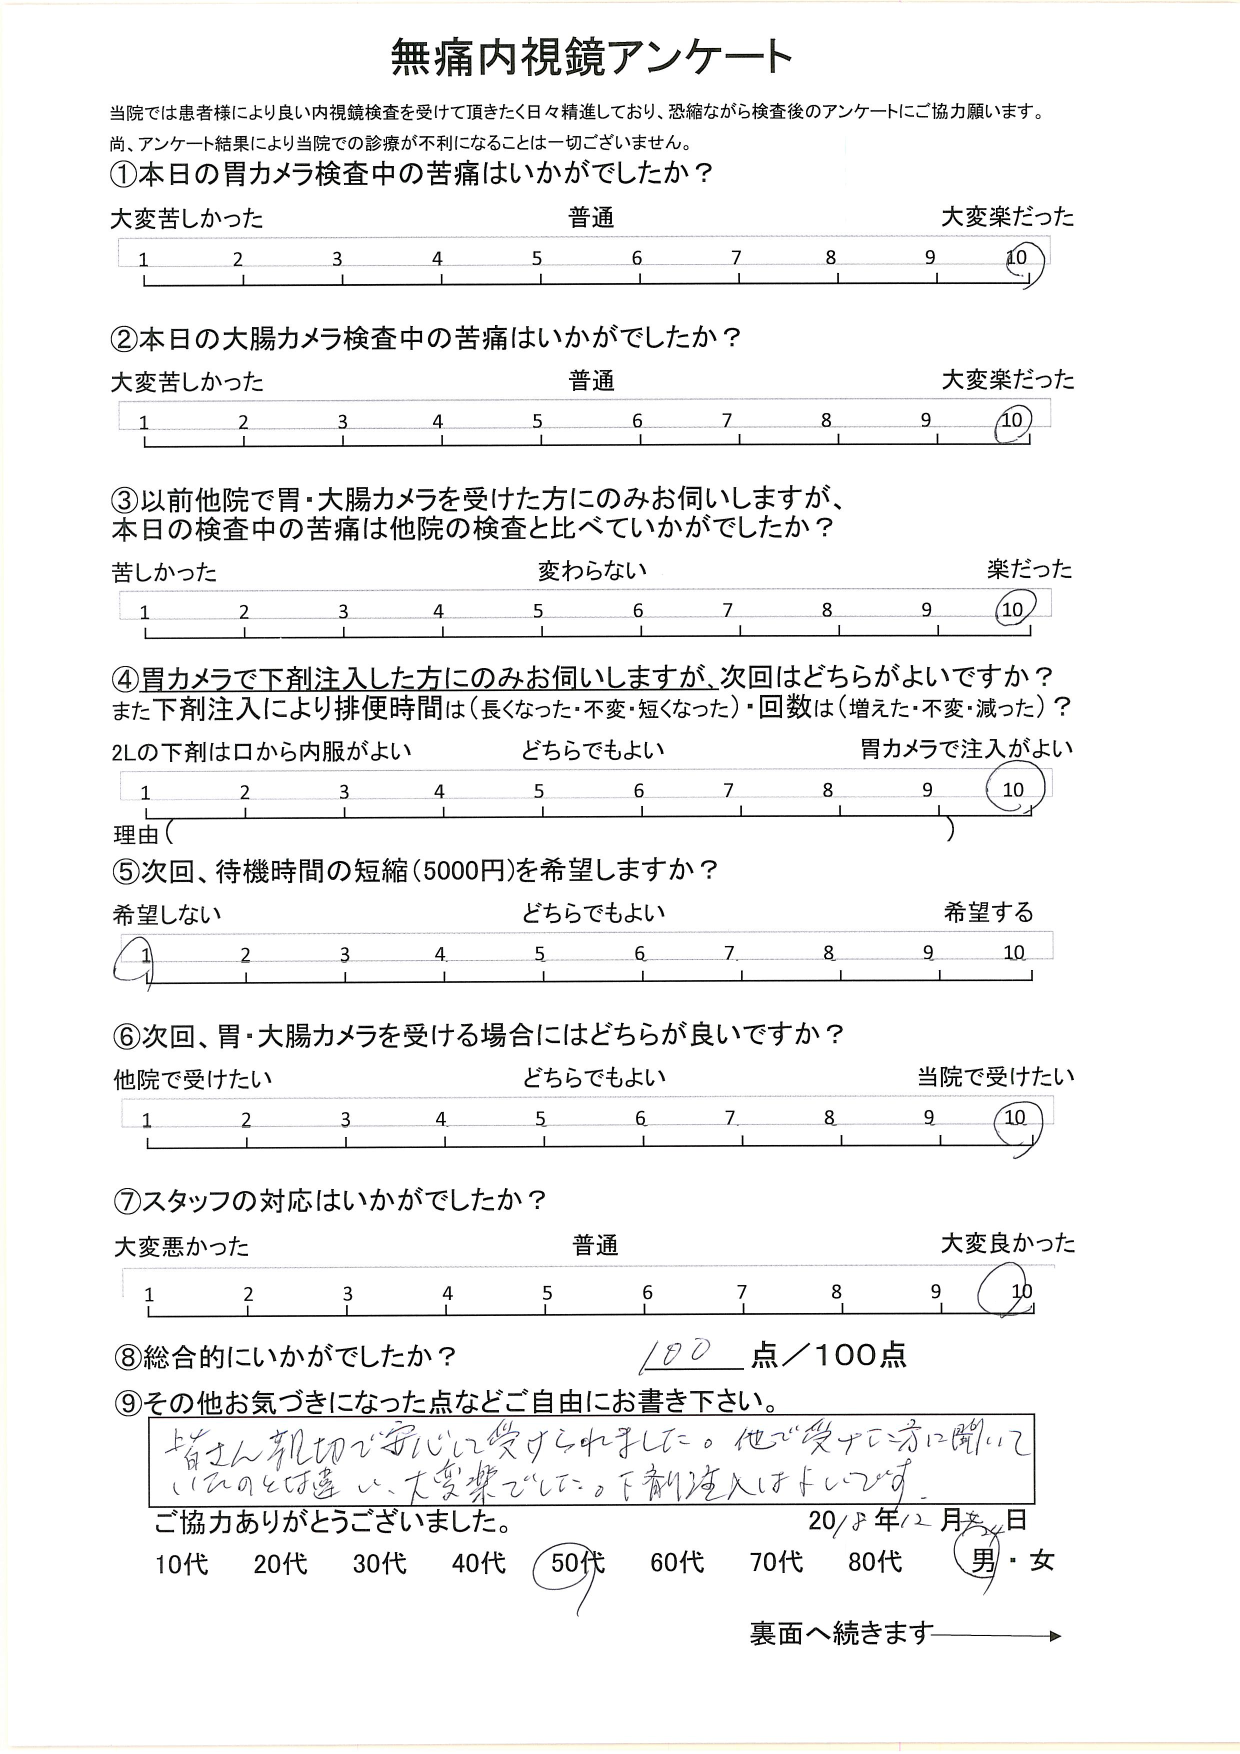 無痛内視鏡アンケート
当院では患者様により良い内視鏡検査を受けて頂きたく日々精進しており、恐縮ながら検査後のアンケートにご協力願います。
尚、アンケート結果により当院での診療が不利になることは一切ございません。
①本日の胃カメラ検査中の苦痛はいかがでしたか？
大変苦しかった 普通 大変楽だった
1 2 3 4 5 6 7 8 9 10
②本日の大腸カメラ検査中の苦痛はいかがでしたか？
大変苦しかった 普通 大変楽だった
1 2 3 4 5 6 7 8 9 10
③以前他院で胃・大腸カメラを受けた方にのみお伺いしますが、
本日の検査中の苦痛は他院の検査と比べていかがでしたか？
苦しかった 変わらない 楽だった
1 2 3 4 5 6 7 8 9 10
④胃カメラで下剤注入した方にのみお伺いしますが、次回はどちらがよいですか？
また下剤注入により排便時間は（長くなった・不変・短くなった）・回数は（増えた・不変・減った）？
2Lの下剤は口から内服がよい どちらでもよい 胃カメラで注入がよい
1 2 3 4 5 6 7 8 9 10
理由（ ）
⑤次回、待機時間の短縮（5000円）を希望しますか？
希望しない どちらでもよい 希望する
1 2 3 4 5 6 7 8 9 10
⑥次回、胃・大腸カメラを受ける場合にはどちらが良いですか？
他院で受けたい どちらでもよい 当院で受けたい
1 2 3 4 5 6 7 8 9 10
⑦スタッフの対応はいかがでしたか？
大変悪かった 普通 大変良かった
1 2 3 4 5 6 7 8 9 10
⑧総合的にいかがでしたか？ 100 点／100点
⑨その他お気づきになった点などご自由にお書き下さい。
皆さん親切で安心して受けられました。他で受けた方に聞いて
いたのとは違い、大変楽でした。下剤注入はよいです。
ご協力ありがとうございました。 2018年12月24日
10代 20代 30代 40代 50代 60代 70代 80代 男・女
裏面へ続きます